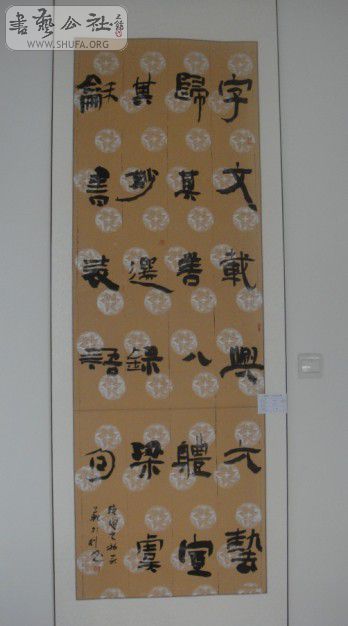 書藝公社
WWW.SHUFA.ORG
字文載興六藝
歸其善八體宣
其妙選録梁虞
龢書表語句